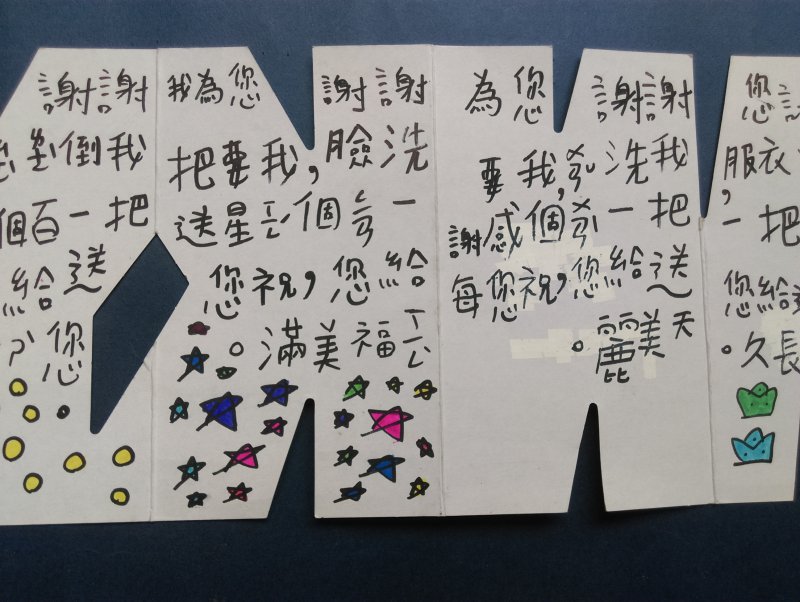 您
衣服,
把一
給您
長久。
謝謝您為
我洗,我要
把一個感謝
送給您,祝您每
天美麗。
謝謝您為我
洗臉,我要把
一個星送
給您,祝您
福美滿。
謝謝
我倒
把一百個
送給
您